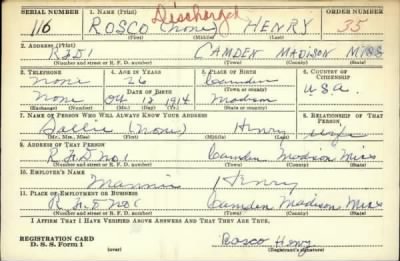 SERIAL NUMBER 1. NAME (Print) ORDER NUMBER
Discharged
116 ROSCO (none) HENRY 35
(First) (Middle) (Last)
2. ADDRESS (Print)
RFD1 CAMDEN MADISON MISS
(Number and street or R. F. D. number) (Town) (County) (State)
3. TELEPHONE 4. AGE IN YEARS 5. PLACE OF BIRTH 6. COUNTRY OF CITIZENSHIP
none 26 Camden
DATE OF BIRTH (Town or county) U.S.A.
None Oct 12 1914 Madison
(Exchange) (Number) (Mo.) (Day) (Yr.) (State or country)
7. NAME OF PERSON WHO WILL ALWAYS KNOW YOUR ADDRESS 8. RELATIONSHIP OF THAT PERSON
Sallie (None) Henry wife
(Mr., Mrs., Miss) (First) (Middle) (Last)
9. ADDRESS OF THAT PERSON
R.F.D No. 1 Camden Madison Miss
(Number and street or R. F. D. number) (Town) (County) (State)
10. EMPLOYER'S NAME
Mannie Henry
11. PLACE OF EMPLOYMENT OR BUSINESS
R.F.D No 1 Camden Madison Miss
(Number and street or R. F. D. number) (Town) (County) (State)
I AFFIRM THAT I HAVE VERIFIED ABOVE ANSWERS AND THAT THEY ARE TRUE.
REGISTRATION CARD
D. S. S. Form 1 (over) Rosco Henry
(Registrant's signature)